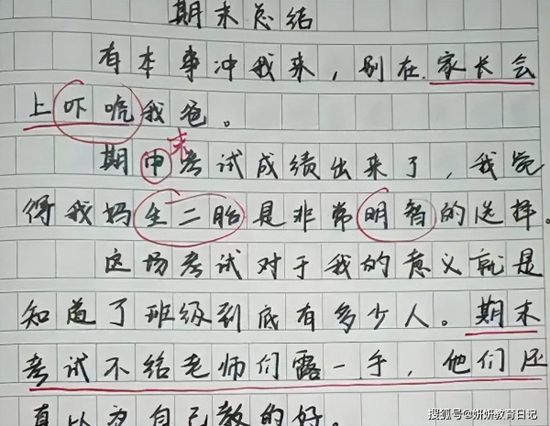 期末总结
有本事冲我来，别在家长会
上吓唬我爸。
末
期中考试成绩出来了，我觉
得我妈生二胎是非常明智的选择。
这场考试对于我的意义就是
知道了班级到底有多少人。期末
考试不给老师们露一手，他们还
真以为自己教的好。
搜狐号@妍妍教育日记